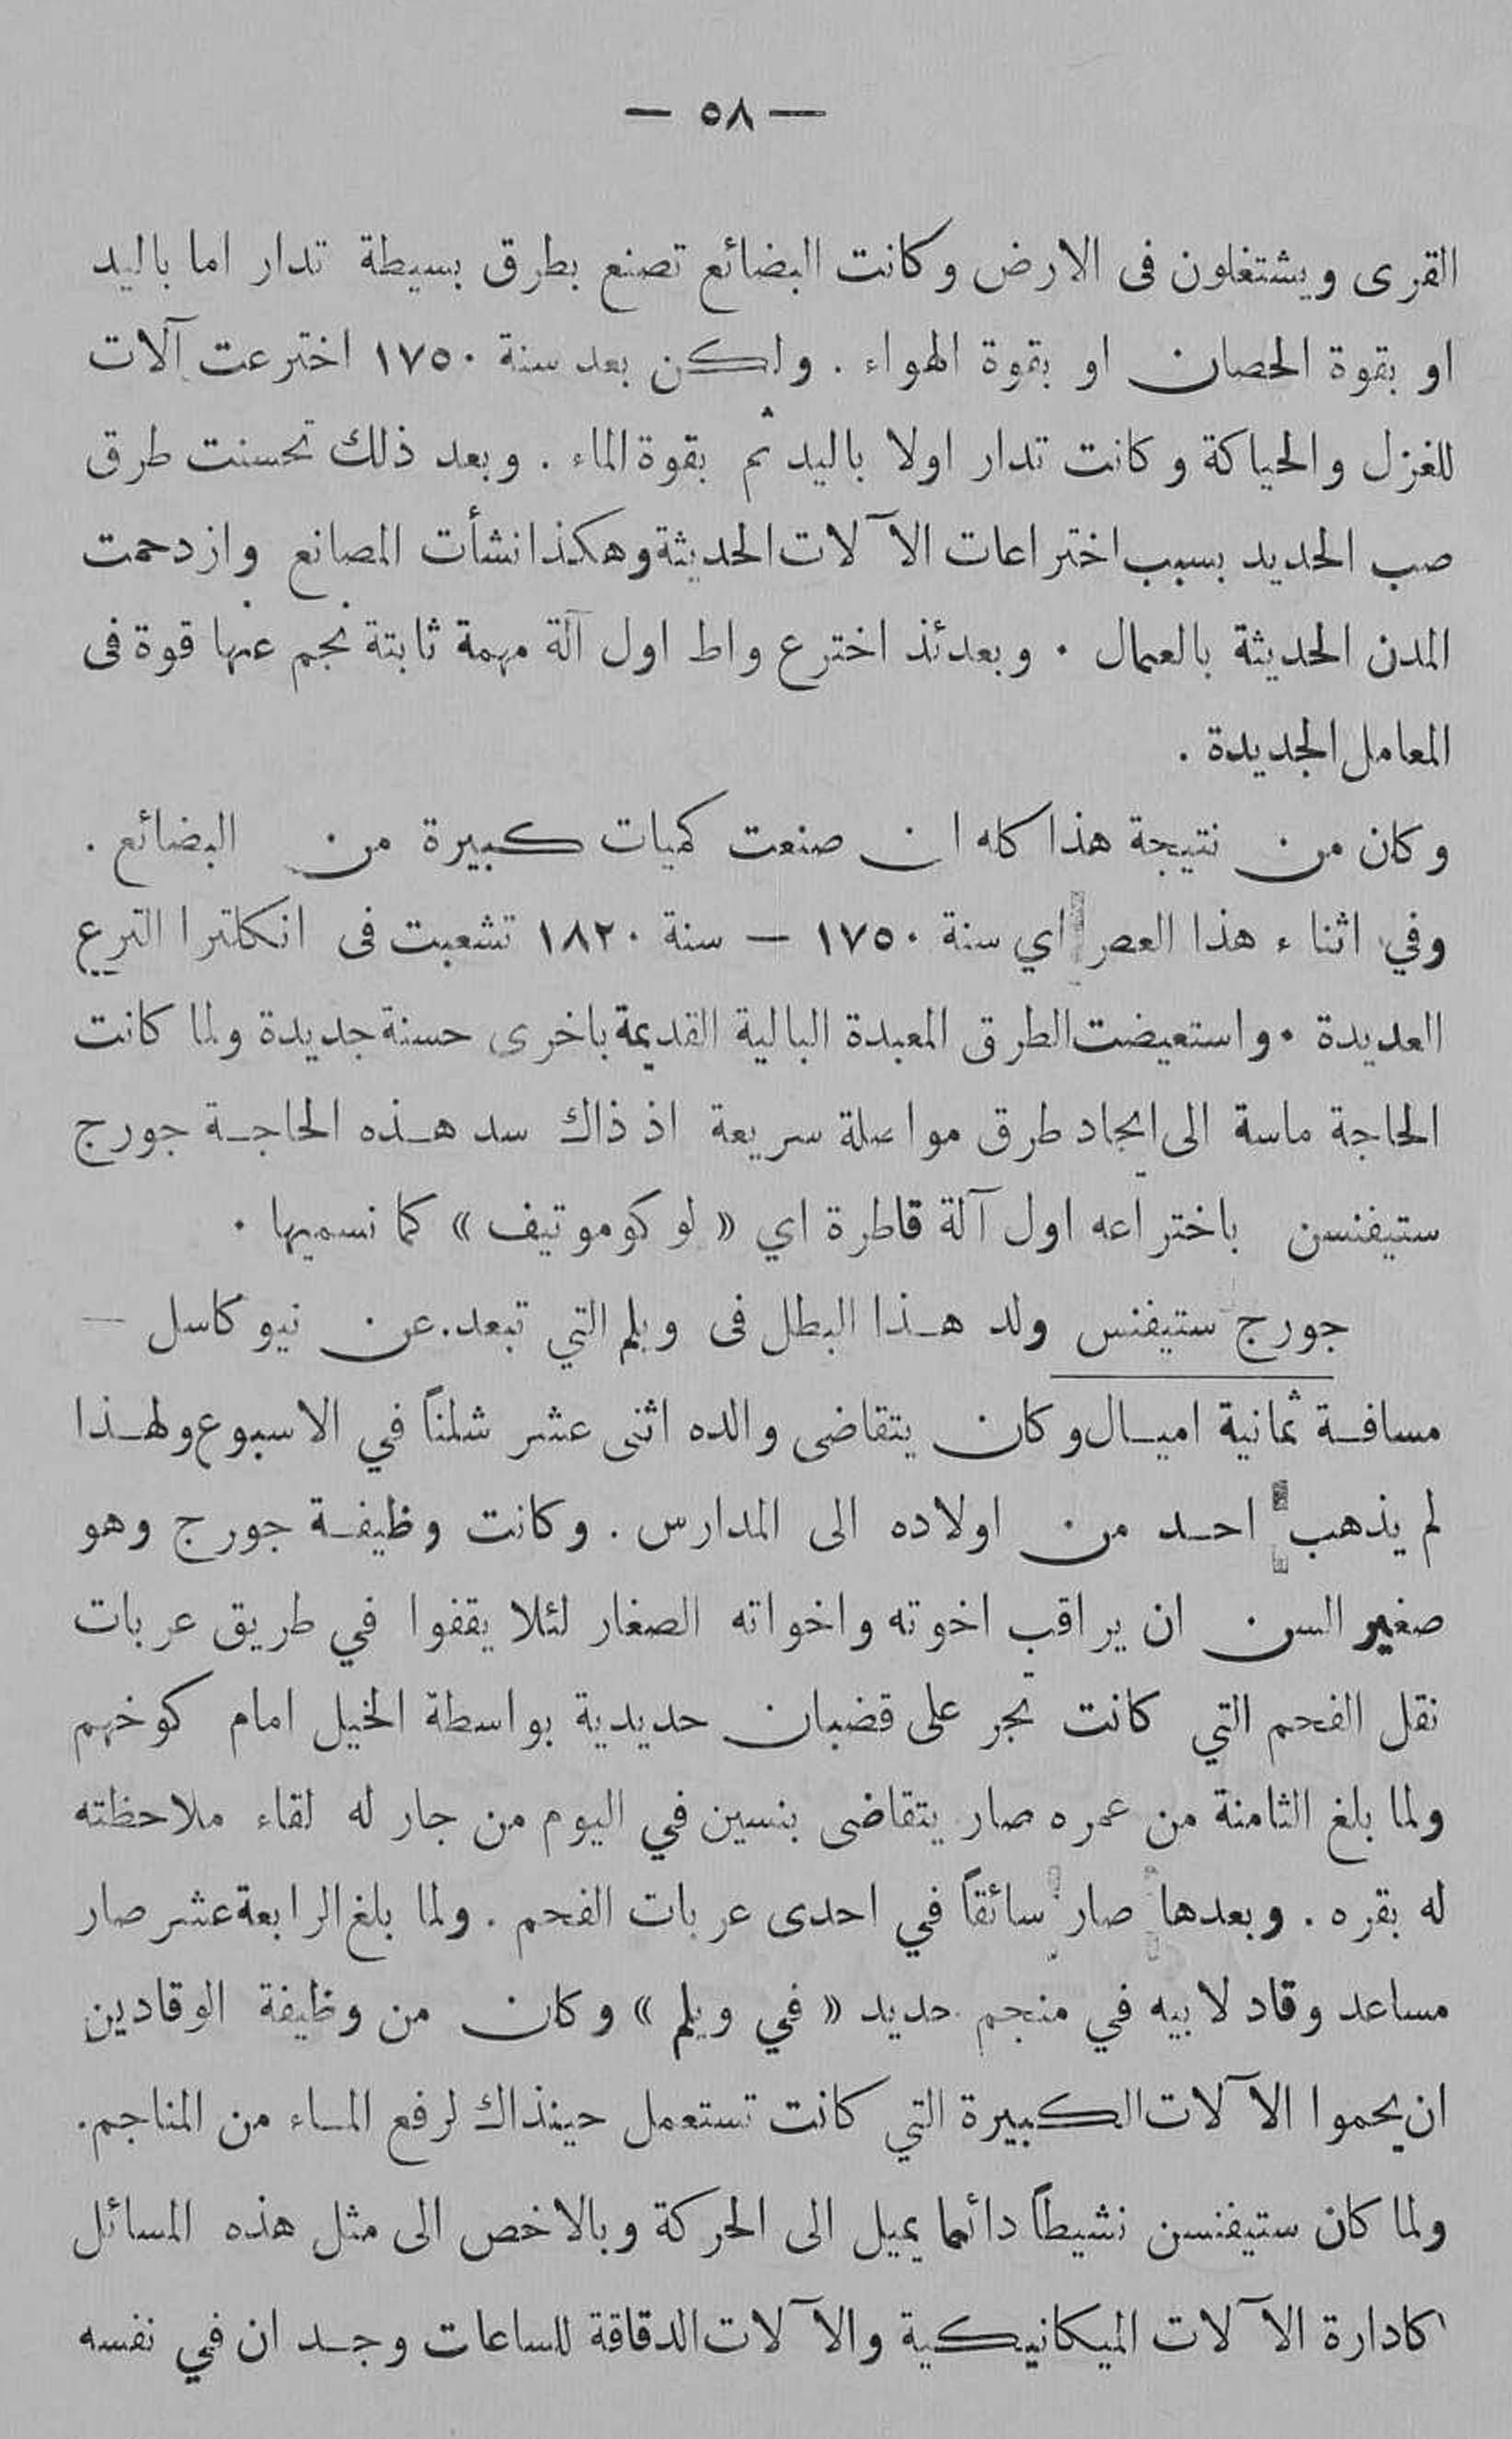 — ٥٨ —
القرى ويشتغلون فى الارض وكانت البضائع تصنع بطرق بسيطة تدار اما باليد
او بقوة الحصان او بقوة الهواء . ولكن بعد سنة ١٧٥٠ اخترعت آلات
للغزل والحياكة وكانت تدار اولا باليد ثم بقوة الماء . وبعد ذلك تحسنت طرق
صب الحديد بسبب اختراعات الآلات الحديثة وهكذا نشأت المصانع وازدحمت
المدن الحديثة بالعمال . وبعدئذ اخترع واط اول آلة مهمة ثابتة نجم عنها قوة فى
المعامل الجديدة .
وكان من نتيجة هذا كله ان صنعت كميات كبيرة من البضائع .
وفي اثناء هذا العصر اي سنة ١٧٥٠ — سنة ١٨٢٠ تشعبت فى انكلترا الترع
العديدة . واستعيضت الطرق المعبدة البالية القديمة باخرى حسنة جديدة ولما كانت
الحاجة ماسة الى ايجاد طرق مواصلة سريعة اذ ذاك سد هذه الحاجة جورج
ستيفنسن باختراعه اول آلة قاطرة اي « لوكوموتيف » كما نسميها .
جورج ستيفنس ولد هذا البطل فى ويلم التي تبعد . عن نيوكاسل —
مسافة ثمانية اميال وكان يتقاضى والده اثنى عشر شلناً في الاسبوع ولهذا
لم يذهب احد من اولاده الى المدارس . وكانت وظيفة جورج وهو
صغير السن ان يراقب اخوته واخواته الصغار لئلا يقفوا في طريق عربات
نقل الفحم التي كانت تجر على قضبان حديدية بواسطة الخيل امام كوخهم
ولما بلغ الثامنة من عمره صار يتقاضى بنسين في اليوم من جار له لقاء ملاحظته
له بقره . وبعدها صار سائقاً في احدى عربات الفحم . ولما بلغ الرابعة عشر صار
مساعد وقاد لابيه في منجم حديد « في ويلم » وكان من وظيفة الوقادين
ان يحموا الآلات الكبيرة التي كانت تستعمل حينذاك لرفع الماء من المناجم .
ولما كان ستيفنسن نشيطاً دائما يميل الى الحركة وبالاخص الى مثل هذه المسائل
كادارة الآلات الميكانيكية والآلات الدقاقة للساعات وجد ان في نفسه